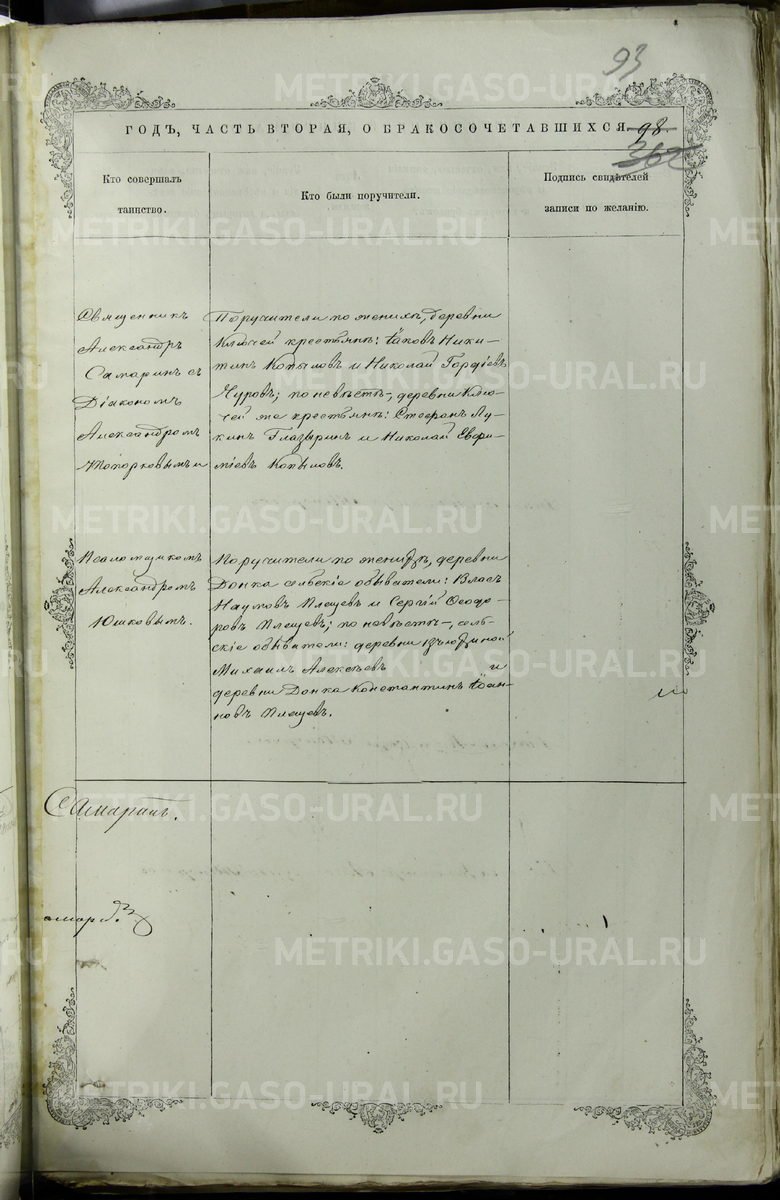 93
ГОДЪ, ЧАСТЬ ВТОРАЯ, О БРАКОСОЧЕТАВШИХСЯ. 98.
362
Кто совершалъ
таинство.
Кто были поручители.
Подпись свидѣтелей
записи по желанію.
Священникъ
Александръ
Самаринъ съ
Діакономъ
Александромъ
Топорковымъ и
Поручители по женихѣ, деревни
Ключей крестьяне: Іаковъ Ники-
тинъ Копыловъ и Николай Гордіевъ
Чуровъ; по невѣстѣ, деревни Клю-
чей же крестьяне: Стефанъ Лу-
кинъ Глазыринъ и Николай Евфи-
міевъ Копыловъ.
Псаломщикомъ
Александромъ
Юшковымъ.
Поручители по женихѣ, деревни
Донка сельскіе обыватели: Власъ
Наумовъ Плещевъ и Сергій Ѳеодо-
ровъ Плещевъ; по невѣстѣ, сель-
скіе обыватели: деревни
Михаилъ Алексѣевъ и
деревни Донка Константинъ Іоан-
новъ Плещевъ.
Самаринъ.
METRIKI.GASO-URAL.RU
METRIKI.GASO-URAL.RU
METRIKI.GASO-URAL.RU
METRIKI.GASO-URAL.RU
METRIKI.GASO-URAL.RU
METRIKI.GASO-URAL.RU
METRIKI.GASO-URAL.RU
METRIKI.GASO-URAL.RU